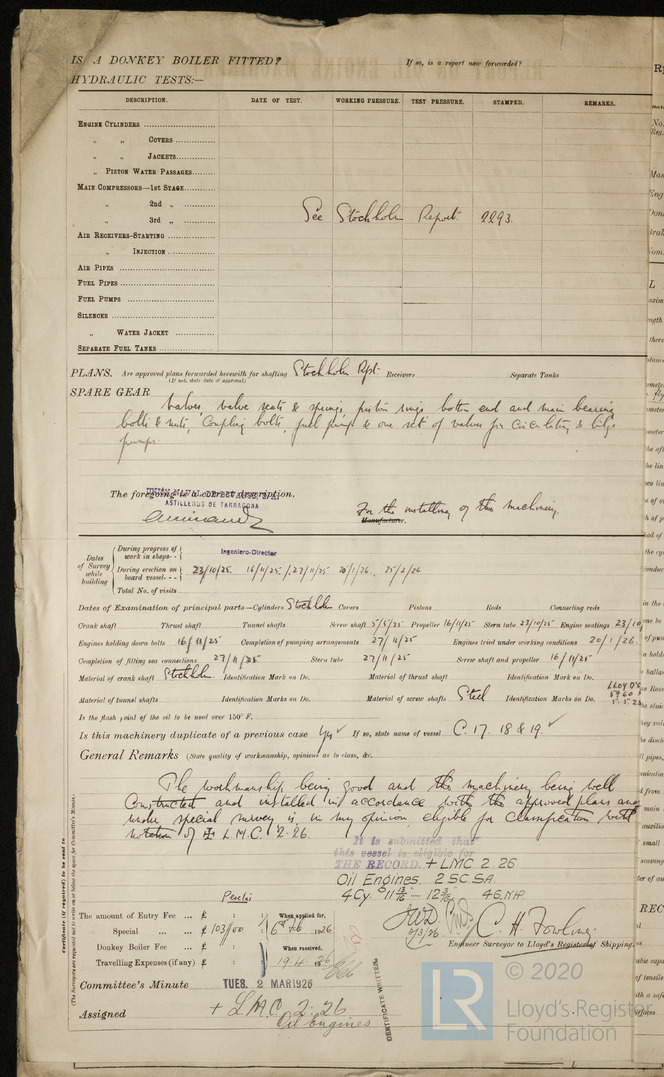 IS A DONKEY BOILER FITTED? If so, is a report now forwarded?
HYDRAULIC TESTS:—
DESCRIPTION. DATE OF TEST. WORKING PRESSURE. TEST PRESSURE. STAMPED. REMARKS.
ENGINE CYLINDERS
„ „ COVERS
„ „ JACKETS
„ PISTON WATER PASSAGES
MAIN COMPRESSORS—1st STAGE
„ 2nd „
„ 3rd „ See Stockholm Report 2293.
AIR RECEIVERS-STARTING
„ INJECTION
AIR PIPES
FUEL PIPES
FUEL PUMPS
SILENCER
„ WATER JACKET
SEPARATE FUEL TANKS
PLANS. Are approved plans forwarded herewith for shafting Stockholm Rpt. Receivers Separate Tanks
(If not, state date of approval)
SPARE GEAR
Valves, valve seats & springs, piston rings bottom end and main bearing
bolts & nuts, Coupling bolts, fuel pump & one set of valves for circulating & bilge
pumps.
The foregoing is a correct description.
ASTILLEROS DE TARRAGONA
For the installing of this machinery.
Manufacturer.
Ingeniero-Director
Dates of Survey while building
During progress of work in shops--
During erection on board vessel--- 23/10/25. 16/11/25, 27/11/25 20/1/26. 25/2/26
Total No. of visits
Dates of Examination of principal parts—Cylinders Stockholm Covers Pistons Rods Connecting rods
Crank shaft Thrust shaft Tunnel shafts Screw shaft 5/5/25 Propeller 16/11/25 Stern tube 23/10/25 Engine seatings 23/10
Engines holding down bolts 16/11/25 Completion of pumping arrangements 27/11/25 Engines tried under working conditions 20/1/26.
Completion of fitting sea connections 27/11/25 Stern tube 27/11/25 Screw shaft and propeller 16/11/25
Material of crank shaft Stockholm. Identification Mark on Do. Material of thrust shaft Identification Mark on Do. LLOYD'S
Material of tunnel shafts Identification Marks on Do. Material of screw shafts Steel Identification Marks on Do. 5960
Is the flash point of the oil to be used over 150° F.
Is this machinery duplicate of a previous case Yes If so, state name of vessel C. 17. 18 & 19.
General Remarks (State quality of workmanship, opinions as to class, &c.
The workmanship being good and the machinery being well
Constructed and installed in accordance with the approved plans and
under special survey is in my opinion eligible for classification with
notation of + L.M.C. 2-26.
It is submitted that
this vessel is eligible for
THE RECORD. + LMC 2 26
Oil Engines. 2 SC. SA.
4 Cy. 11 13/16 – 12 3/16 46 NHP
The amount of Entry Fee ... £ : : When applied for,
Special ... £ 103/00 : 1926
Donkey Boiler Fee ... £ : : When received,
Travelling Expenses (if any) £ : : 19.4 1926
C. H. Fowling.
Engineer Surveyor to Lloyd's Register of Shipping.
Committee's Minute TUES. 2 MAR 1926
Assigned + L.M.C. 2-26
Oil Engines
CERTIFICATE WRITTEN
Certificate (if required) to be sent to
(The Surveyors are requested not to write on or below the space for Committee's Minute.)
LR © 2020
Lloyd's Register
Foundation